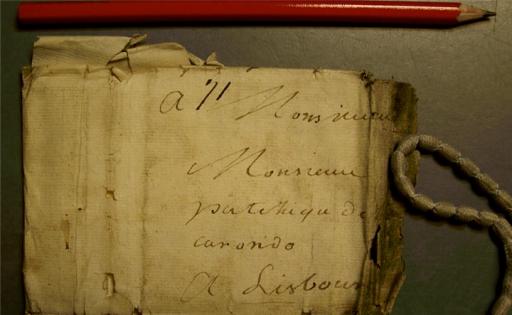 A Monsieur
Monsieur
patchique de
carondo
A Lisbon